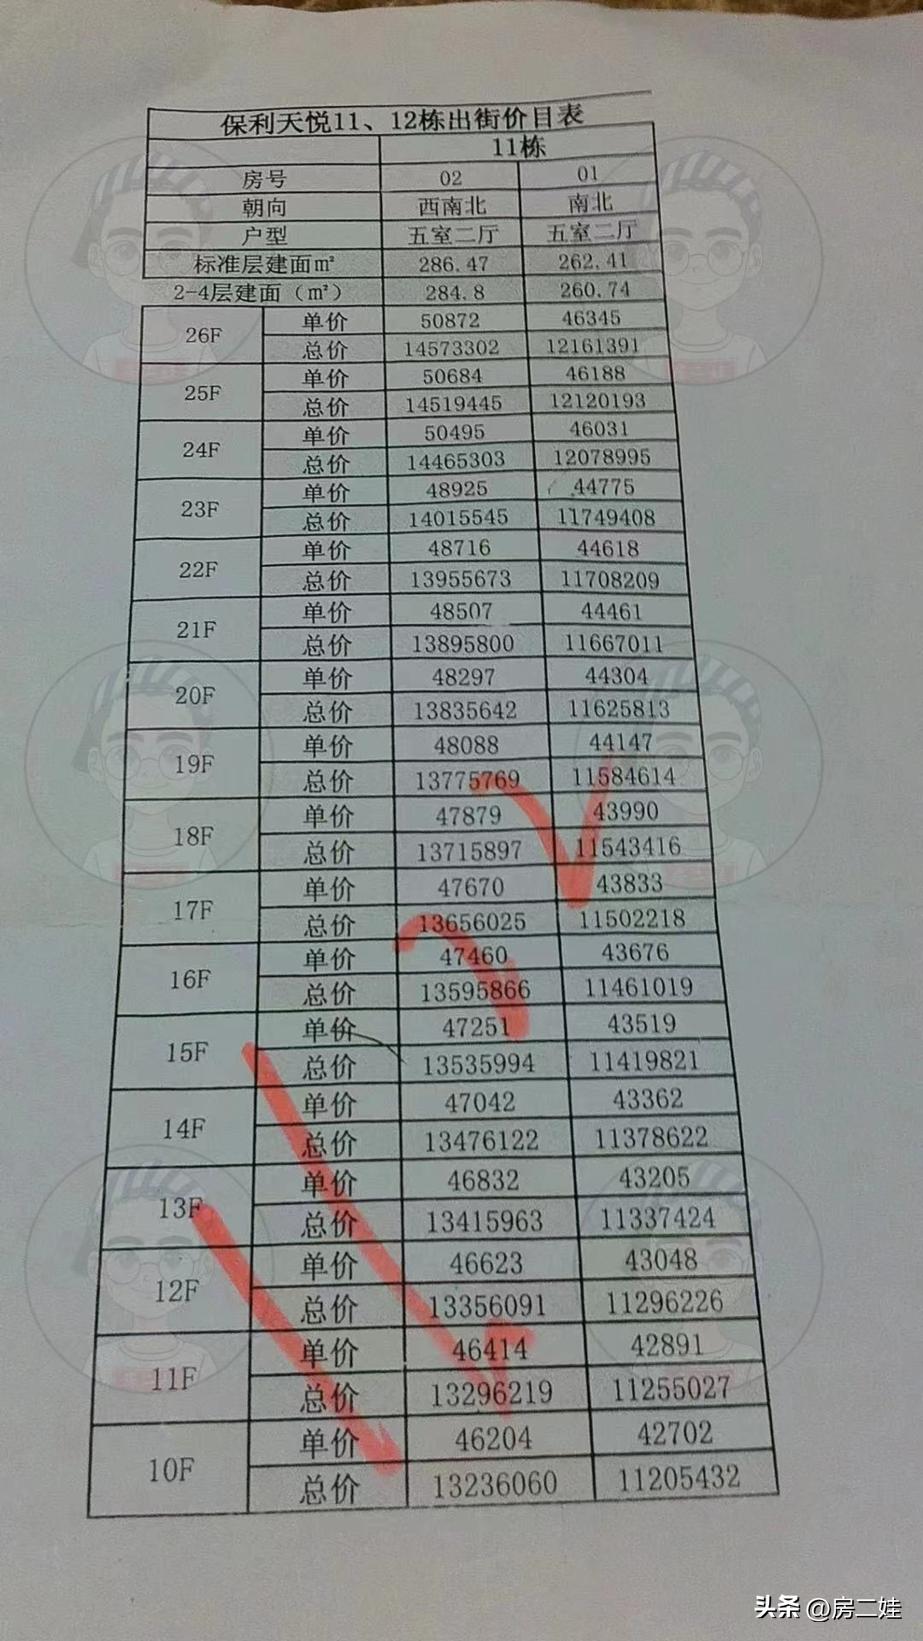 保利天悦11、12栋出街价目表
11栋
房号 02 01
朝向 西南北 南北
户型 五室二厅 五室二厅
标准层建面㎡ 286.47 262.41
2-4层建面（㎡） 284.8 260.74
26F 单价 50872 46345
总价 14573302 12161391
25F 单价 50684 46188
总价 14519445 12120193
24F 单价 50495 46031
总价 14465303 12078995
23F 单价 48925 44775
总价 14015545 11749408
22F 单价 48716 44618
总价 13955673 11708209
21F 单价 48507 44461
总价 13895800 11667011
20F 单价 48297 44304
总价 13835642 11625813
19F 单价 48088 44147
总价 13775769 11584614
18F 单价 47879 43990
总价 13715897 11543416
17F 单价 47670 43833
总价 13656025 11502218
16F 单价 47460 43676
总价 13595866 11461019
15F 单价 47251 43519
总价 13535994 11419821
14F 单价 47042 43362
总价 13476122 11378622
13F 单价 46832 43205
总价 13415963 11337424
12F 单价 46623 43048
总价 13356091 11296226
11F 单价 46414 42891
总价 13296219 11255027
10F 单价 46204 42702
总价 13236060 11205432
头条 @房二娃